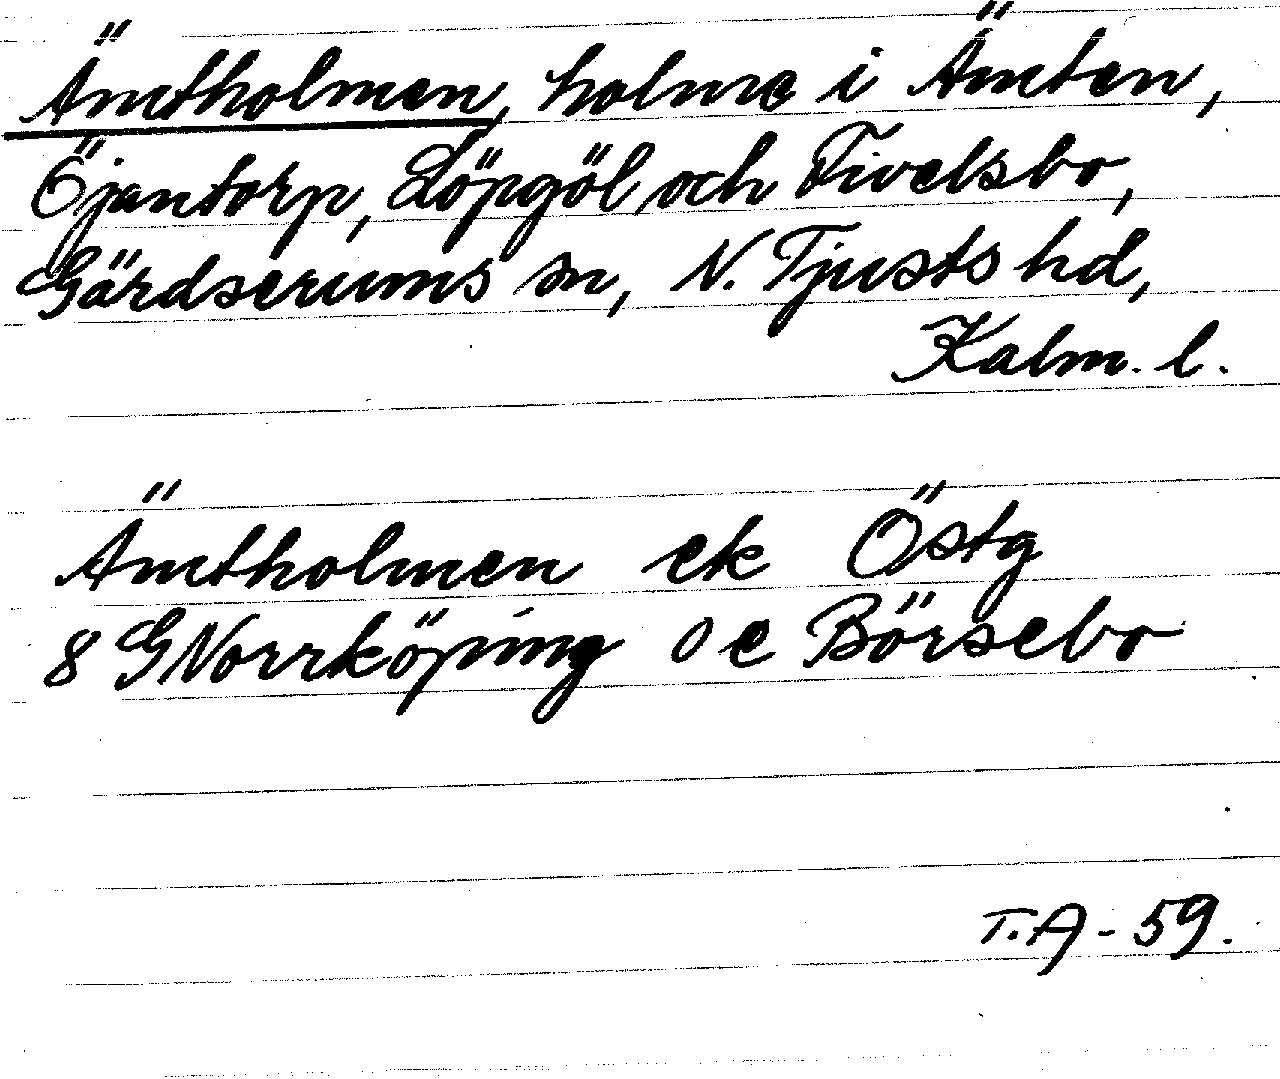 Ämtholmen, holme i Ämten,
Öjantorp, Löpgöl och Fivelsbo,
Gärdserums sn, N. Tjusts hd,
Kalm. l.
Ämtholmen ek Östg
8 G Norrköping o e Börsebo
T.A - 59.